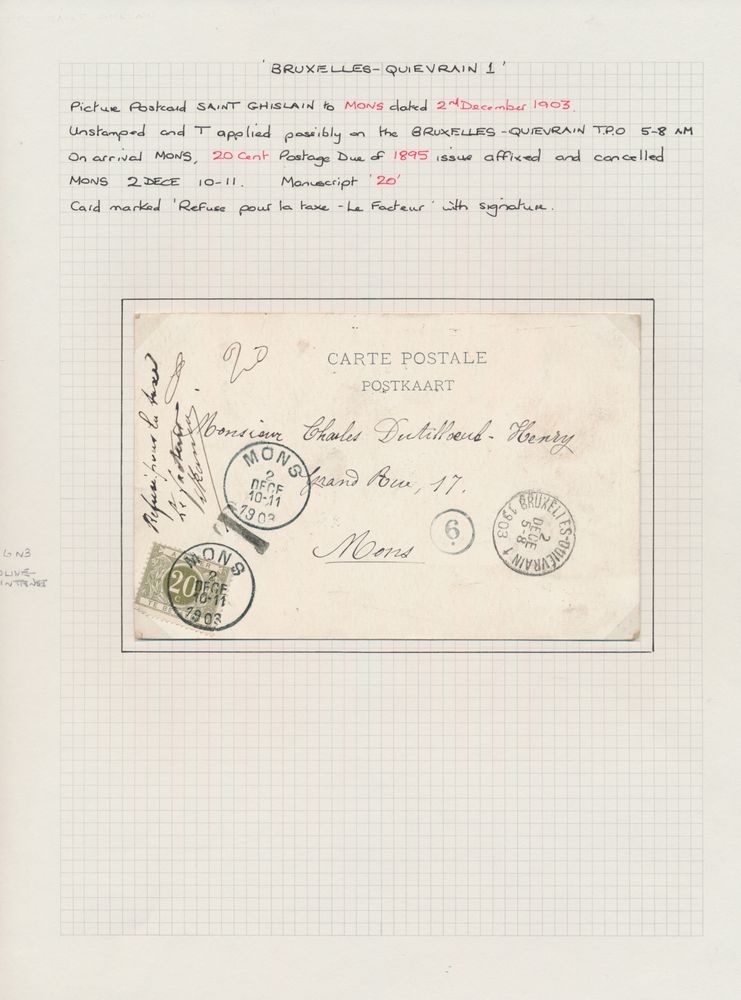 'BRUXELLES-QUIEVRAIN 1'
Picture Postcard SAINT GHISLAIN to MONS dated 2nd December 1903.
Unstamped and T applied possibly on the BRUXELLES-QUIEVRAIN T.P.O 5-8 AM
On arrival MONS, 20 Cent Postage Due of 1895 issue affixed and cancelled
MONS 2 DECE 10-11. Manuscript '20'
Card marked 'Refuse pour la taxe - Le Facteur' with signature.
20
CARTE POSTALE
POSTKAART
Refusé pour la taxe
le facteur
Monsieur Charles Dutilloeul-Henry
Grand Rue, 17.
Mons
MONS
2
DECE
10-11
1903
T
6
BRUXELLES-QUIÉVRAIN 1
2
DECE
5-8
1903
20
MONS
2
DECE
10-11
1903
GN3
OLIVE-